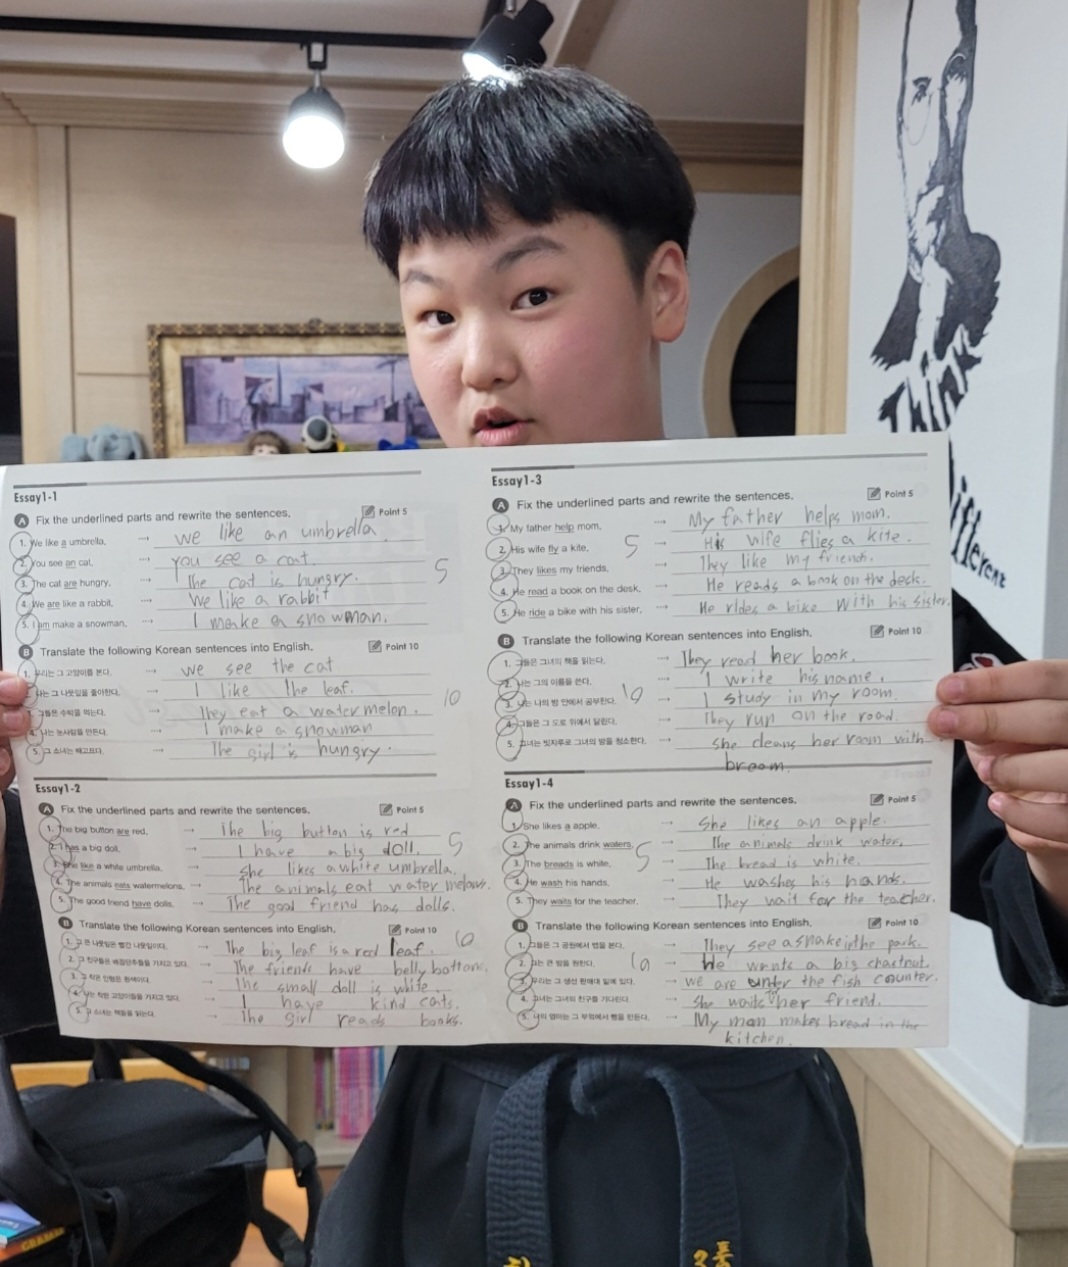 Essay1-1
A Fix the underlined parts and rewrite the sentences. Point 5
1. We like a umbrella. → we like an umbrella.
2. You see an cat. → you see a cat.
3. The cat are hungry. → The cat is hungry.
4. We are like a rabbit. → We like a rabbit
5. I am make a snowman. → I make a snowman.
5
B Translate the following Korean sentences into English. Point 10
1. 우리는 그 고양이를 본다. → we see the cat
2. 나는 그 나뭇잎을 좋아한다. → I like the leaf.
3. 그들은 수박을 먹는다. → They eat a watermelon.
4. 나는 눈사람을 만든다. → I make a snowman
5. 그 소녀는 배고프다. → The girl is hungry.
10
Essay1-2
A Fix the underlined parts and rewrite the sentences. Point 5
1. The big button are red. → The big button is red
2. I has a big doll. → I have a big doll.
3. She like a white umbrella. → she likes a white umbrella.
4. The animals eats watermelons. → The animals eat watermelons.
5. The good friend have dolls. → The good friend has dolls.
5
B Translate the following Korean sentences into English. Point 10
1. 그 큰 나뭇잎은 빨간 나뭇잎이다. → The big leaf is a red leaf.
2. 그 친구들은 배꼽단추들을 가지고 있다. → The friends have belly bottons.
3. 그 작은 인형은 흰색이다. → The small doll is white.
4. 나는 착한 고양이들을 가지고 있다. → I have kind cats.
5. 그 소녀는 책들을 읽는다. → The girl reads books.
10
Essay1-3
A Fix the underlined parts and rewrite the sentences. Point 5
1. My father help mom. → My father helps mom.
2. His wife fly a kite. → His wife flies a kite.
3. They likes my friends. → They like my friends.
4. He read a book on the desk. → He reads a book on the desk.
5. He ride a bike with his sister. → He rides a bike with his sister.
5
B Translate the following Korean sentences into English. Point 10
1. 그들은 그녀의 책을 읽는다. → They read her book.
2. 나는 그의 이름을 쓴다. → I write his name.
3. 나는 나의 방 안에서 공부한다. → I study in my room.
4. 그들은 그 도로 위에서 달린다. → They run on the road.
5. 그녀는 빗자루로 그녀의 방을 청소한다. → she cleans her room with
broom.
10
Essay1-4
A Fix the underlined parts and rewrite the sentences. Point 5
1. She likes a apple. → she likes an apple.
2. The animals drink waters. → The animels drink water.
3. The breads is white. → The bread is white.
4. He wash his hands. → He washes his hands.
5. They waits for the teacher. → They wait for the teacher.
5
B Translate the following Korean sentences into English. Point 10
1. 그들은 그 공원에서 뱀을 본다. → They see a snake in the park.
2. 그는 큰 밤을 원한다. → He wants a big chastnut.
3. 우리는 그 생선 판매대 밑에 있다. → we are under the fish counter.
4. 그녀는 그녀의 친구를 기다린다. → she waits for her friend.
5. 나의 엄마는 그 부엌에서 빵을 만든다. → My mom makes bread in the
kitchen.
10
Think
different
GRAMM